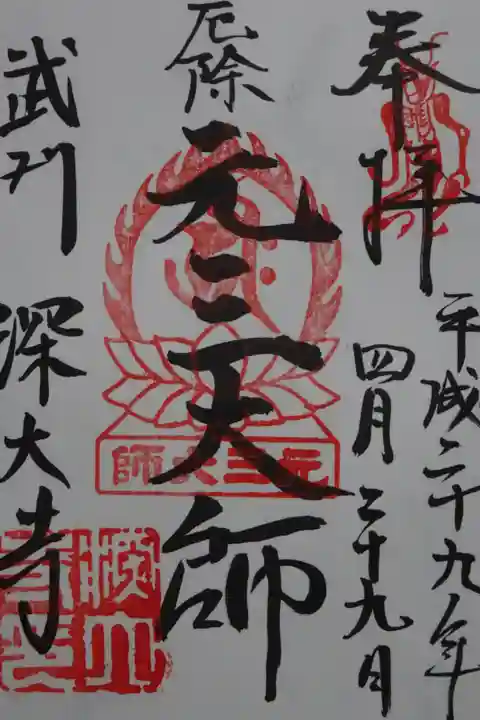 奉拝
平成二十九年
四月二十九日
厄除
元三大師
武州 深大寺
師大三元
深大寺